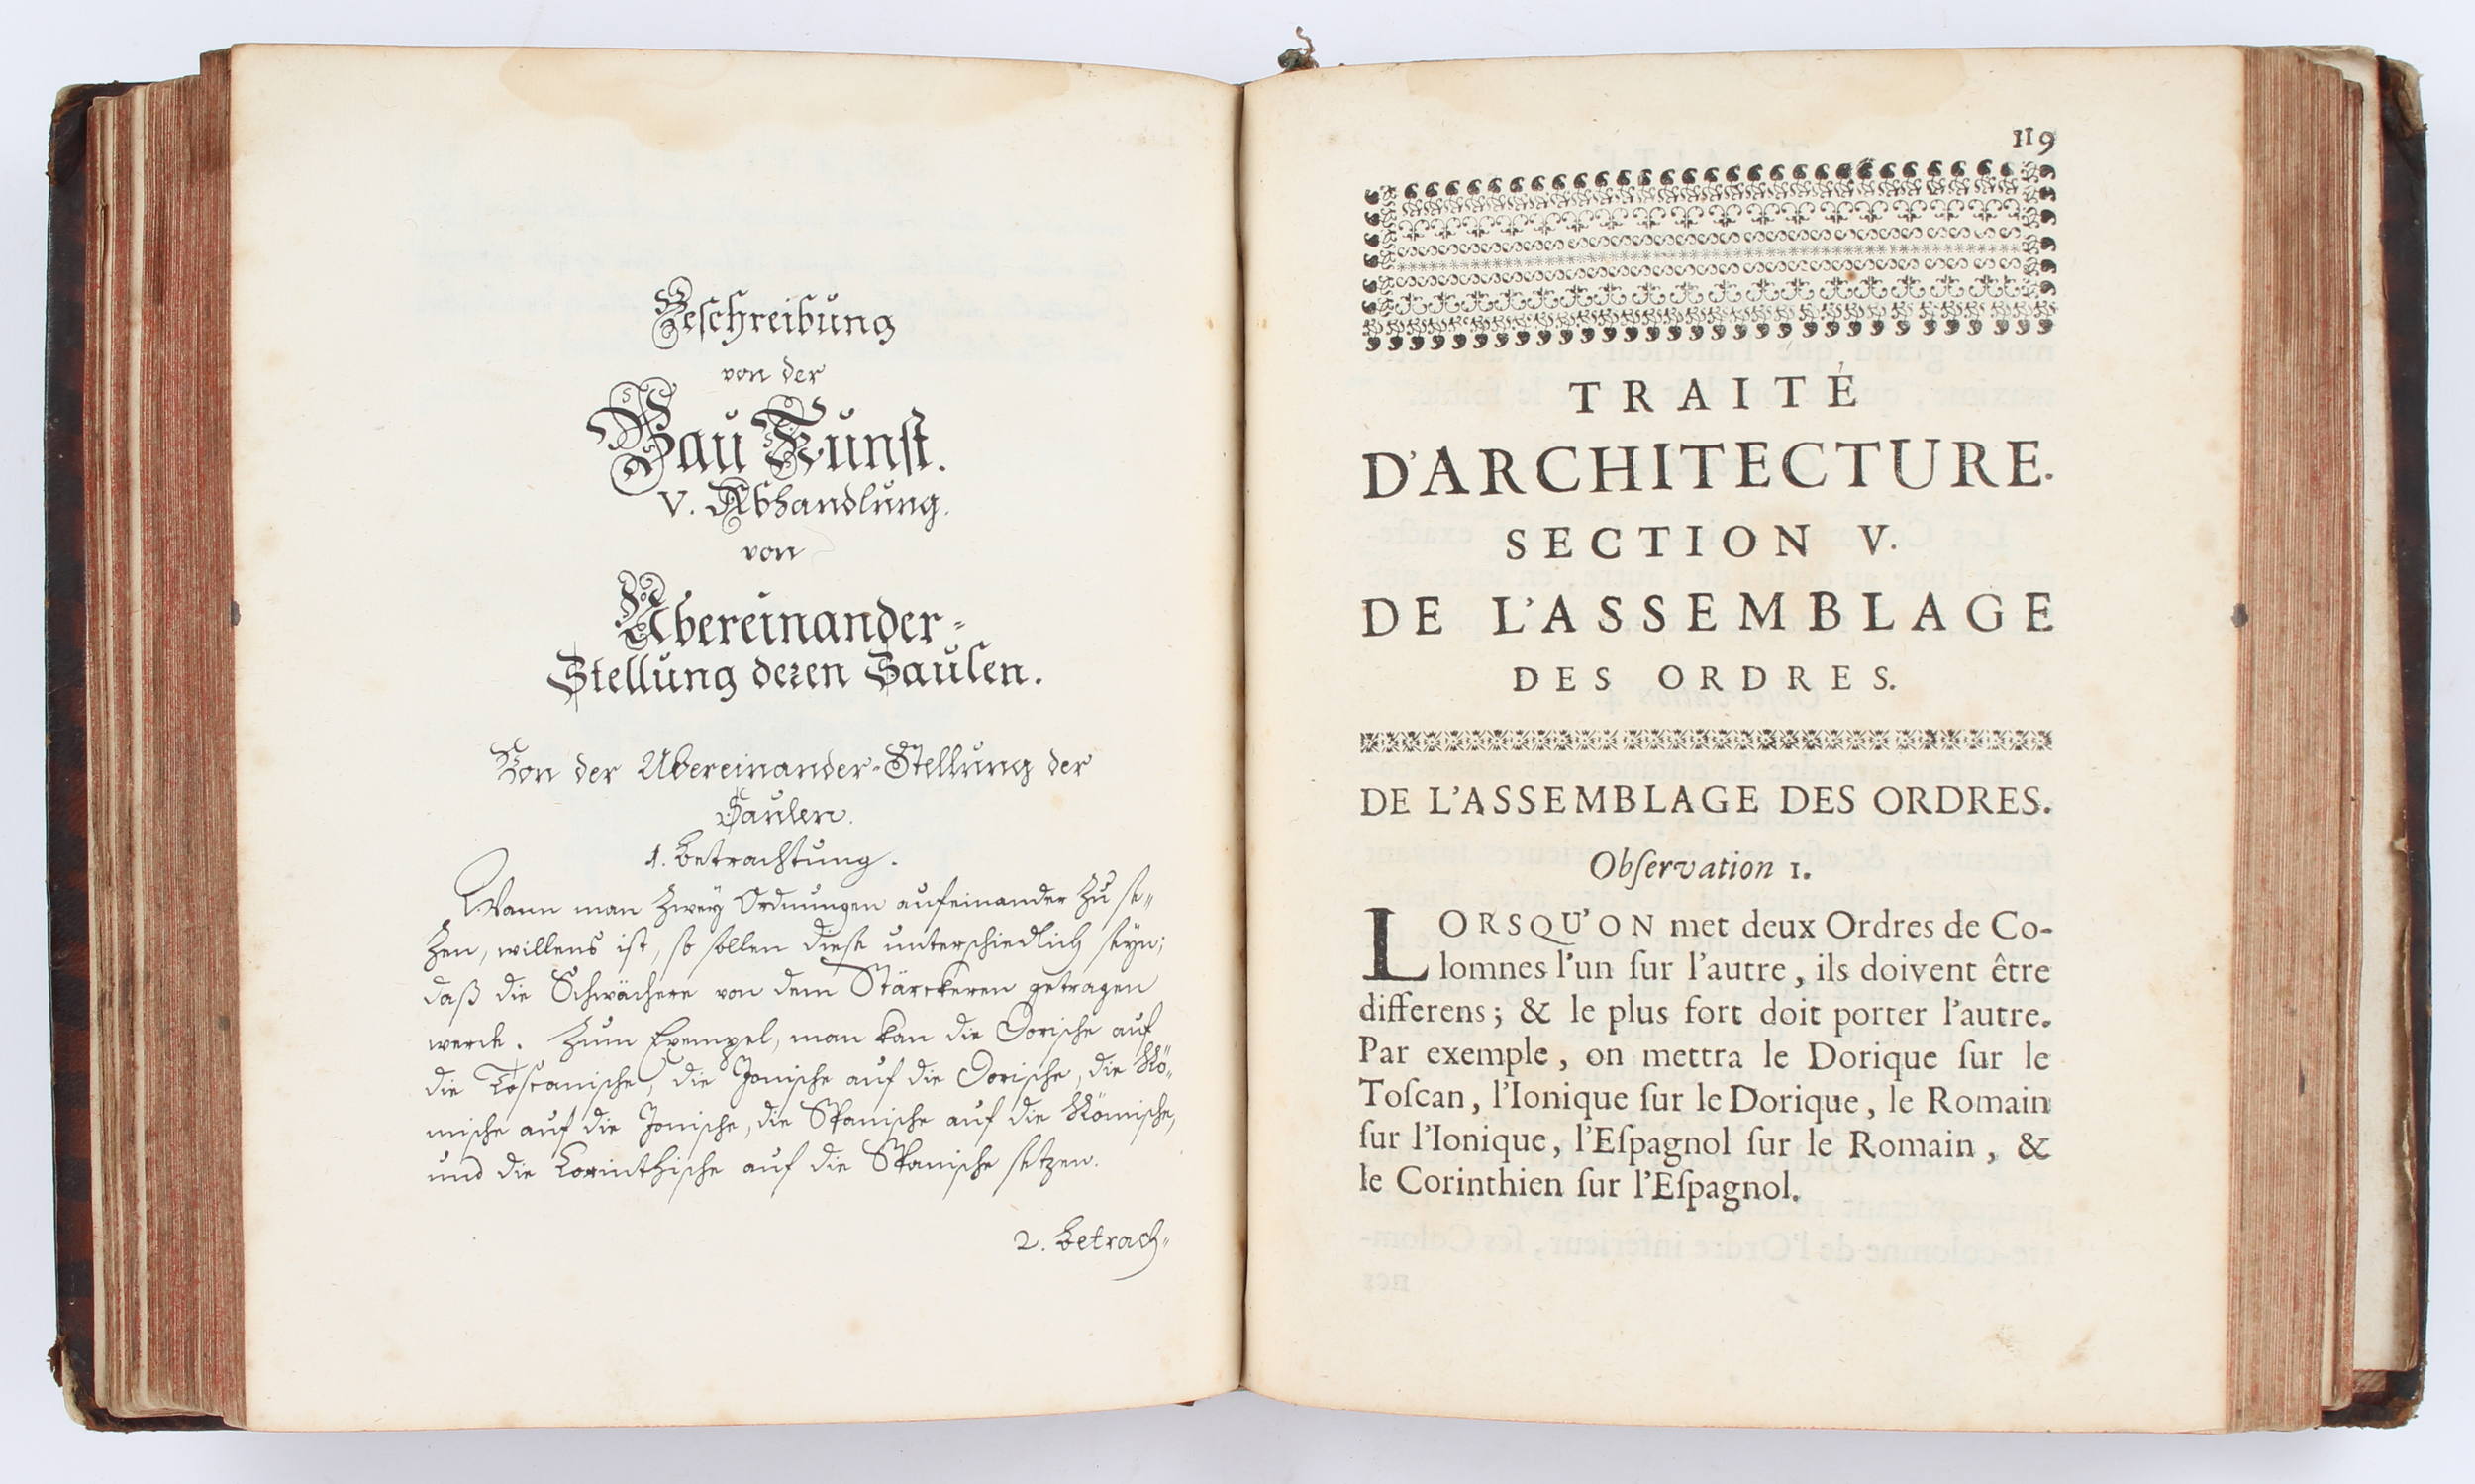 Beschreibung
von der
Bau Kunst.
V. Abhandlung.
von
Ubereinander-
Stellung deren Saulen.
Von der Ubereinander-Stellung der
Saulen.
1. Betrachtung.
Wann man zwey Ordnungen aufeinander zu se-
zen, willens ist, so sollen diese unterschiedlich seyn;
daß die Schwächere von dem Stärckeren getragen
werde. Zum Exempel, man kan die Dorische auf
die Toscanische, die Jonische auf die Dorische, die Rö-
mische auf die Jonische, die Spanische auf die Römische,
und die Corinthische auf die Spanische setzen.
2. Betrach-
119
TRAITÉ
D'ARCHITECTURE.
SECTION V.
DE L'ASSEMBLAGE
DES ORDRES.
DE L'ASSEMBLAGE DES ORDRES.
Obſervation 1.
LORSQU'ON met deux Ordres de Co-
lomnes l'un ſur l'autre, ils doivent être
differens; & le plus fort doit porter l'autre.
Par exemple, on mettra le Dorique ſur le
Toſcan, l'Ionique ſur le Dorique, le Romain
ſur l'Ionique, l'Eſpagnol ſur le Romain, &
le Corinthien ſur l'Eſpagnol.